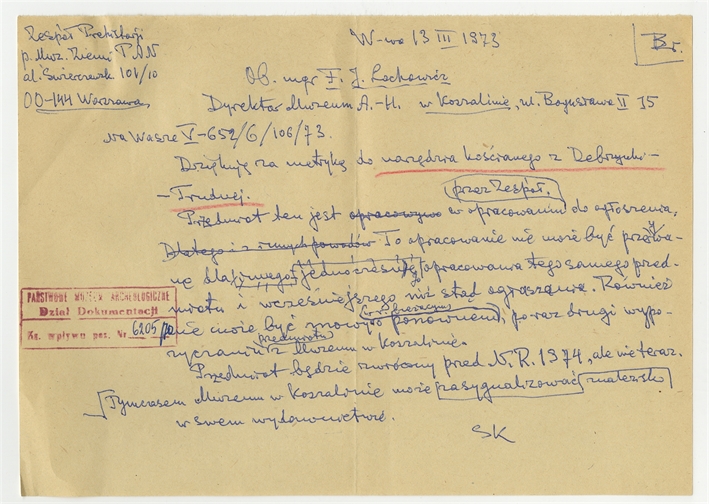 Zespół Prehistorji
p. Muz. Ziemi PAN
al. Świerczewsk 101/10
00-144 Warszawa
W-wa 13 III 1973
Br.
Ob. mgr F. J. Lachowicz
Dyrektor Muzeum A.-H. w Koszalinie, ul. Bogusława II 15
na Wasze V-652/6/106/73.
Dziękuję za metrykę do narzędzia kościanego z Debrzynki-
-Trudnej.
przez Zespół.
Przedmiot ten jest opracowywo w opracowaniu do ogłoszenia.
Dlatego i z innych powodów To opracowanie nie może być przerwa-
ne dla jednoczesn opracowana tego samego przed-
miotu i wcześniejszego niż stąd ogłoszenia. Również
nie może być mowy o ponownem, po raz drugi wypo-
życzaniu przedmiotu z Muzeum w Koszalinie.
Przedmiot będzie zwrócony przed N.R. 1974, ale nie teraz.
Tymczasem Muzeum w Koszalinie może zasygnalizować znalezisko
w swem wydawnictwie.
SK
PAŃSTWOWE MUZEUM ARCHEOLOGICZNE
Dział Dokumentacji
Ks. wpływu poz. Nr 6205